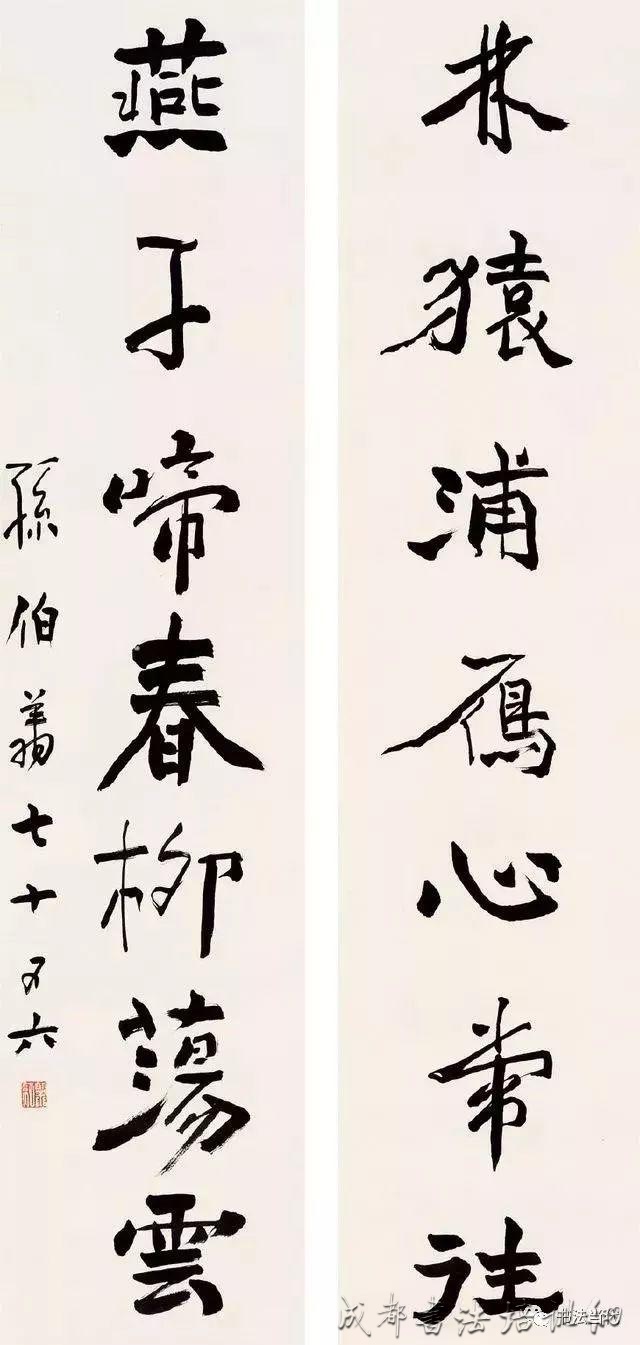 林猿浦鴈心常往
燕子啼春柳蕩雲
孫伯翔七十又六
成都書法培